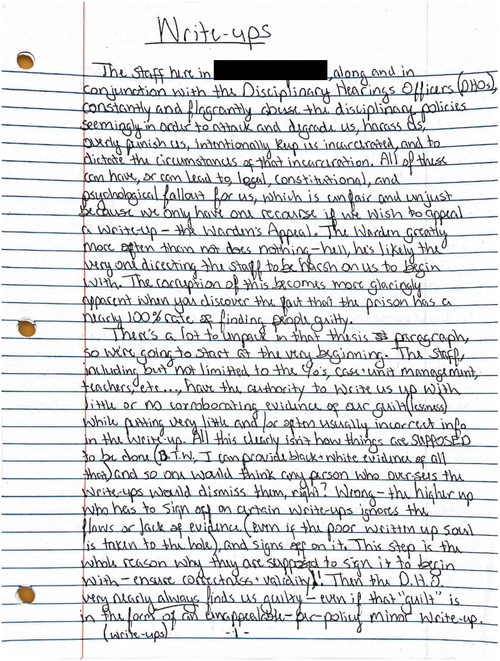 Write-ups
The staff here in , along and in
conjunction with the Disciplinary Hearings Officers (DHOs),
constantly and flagrantly abuse the disciplinary policies
seemingly in order to attack and degrade us, harass us,
overly punish us, intentionally keep us incarcerated, and to
dictate the circumstances of that incarceration. All of these
can have, or can lead to, legal, constitutional, and
psychological fallout for us, which is unfair and unjust
because we only have one recourse if we wish to appeal
a write-up – the Warden's Appeal. The Warden greatly
more often than not does nothing – hell, he's likely the
very one directing the staff to be harsh on us to begin
with. The corruption of this becomes more glaringly
apparent when you discover the fact that the prison has a
nearly 100% rate of finding people guilty.
There's a lot to unpack in that thesis paragraph,
so we're going to start at the very beginning. The staff,
including but not limited to the C/o's, case + unit management,
teachers, etc..., have the authority to write us up with
little or no corroborating evidence of our guilt (lessness)
while putting very little and/or often usually incorrect info
in the write-up. All this clearly isn't how things are SUPPOSED
to be done (B.T.W., I can provide black + white evidence of all
that) and so one would think any person who over-sees the
write-ups would dismiss them, right? Wrong – the higher up
who has to sign off on certain write-ups ignores the
flaws or lack of evidence (even if the poor written up soul
is taken to the hole), and signs off on it. This step is the
whole reason why they are supposed to sign it to begin
with – ensure correctness + validity! Then the D.H.O
very nearly always finds us guilty – even if that "guilt" is
in the form of an unappealable-per-policy minor write-up.
(write-ups) -1-